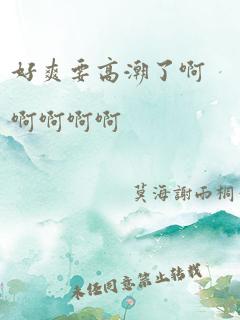 好爽要高潮了啊
啊啊啊啊
莫海謝雨桐
未经同意禁止转载